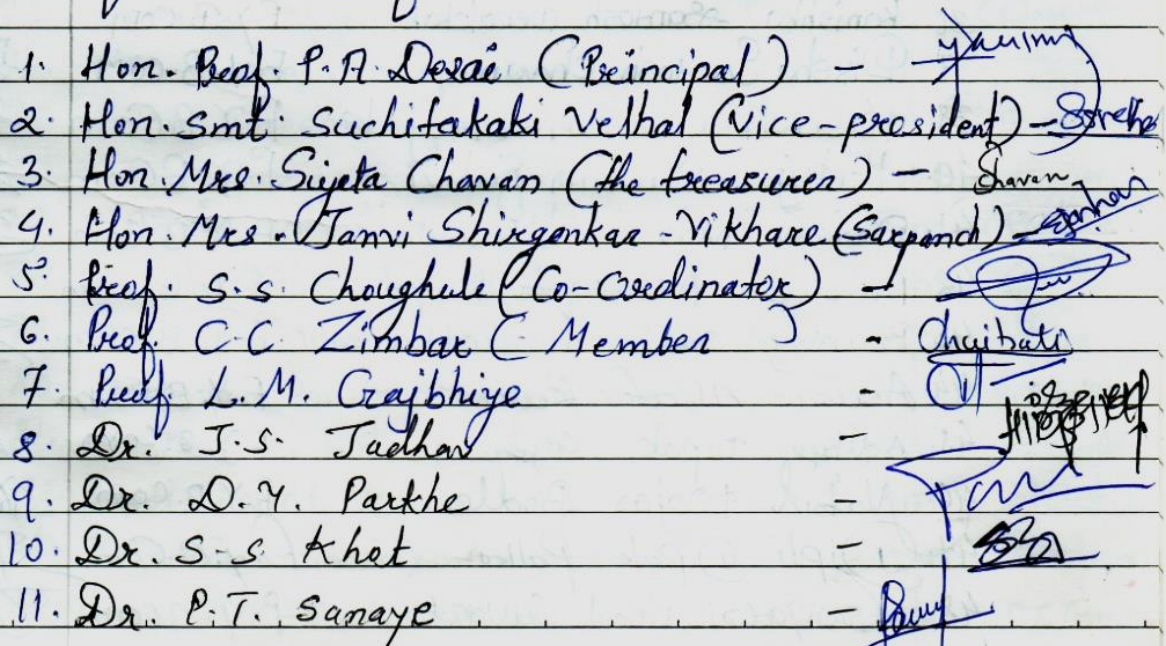 1. Hon. Prof. P.A. Desai (Principal) -
2. Hon. Smt. Suchitakaki Velhal (Vice-president) -
3. Hon. Mrs. Sujeta Chavan (the treasurer) - Chavan
4. Hon. Mrs. Janvi Shirgonkar - Vikhare (Sarpanch) -
5. Prof. S.S. Choughule (Co-Ordinator) -
6. Prof. C.C. Zimbar ( Member ) -
7. Prof. L.M. Gajbhiye -
8. Dr. J.S. Jadhav -
9. Dr. D.Y. Parkhe -
10. Dr. S-S Khot -
11. Dr. P.T. Sanaye -